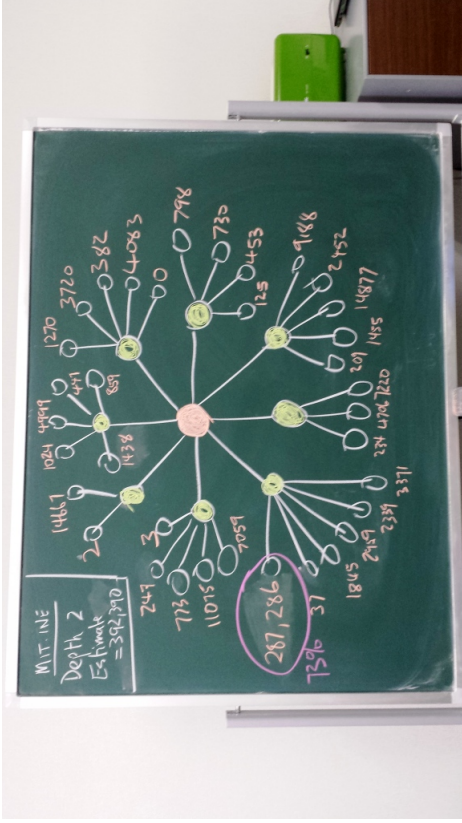 MIT. INE
Depth 2
Estimate
= 392,390
1270
3720
382
4083
0
798
730
453
125
9188
2452
14877
1455
209
7220
4706
234
3371
2339
2959
1845
37
287,286
73%
7059
11075
773
247
3
2
14667
1438
1024
4999
447
859